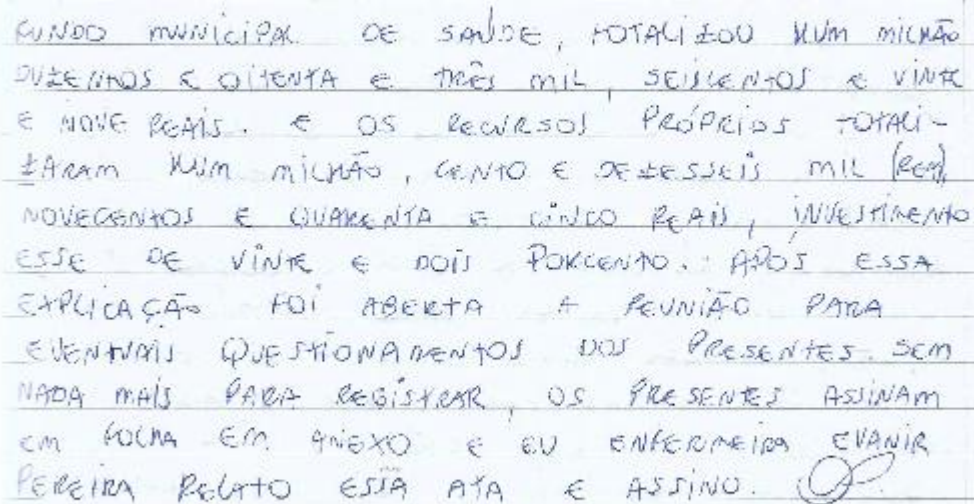 FUNDO MUNICIPAL DE SAÚDE, TOTALIZOU HUM MILHÃO
DUZENTOS E OITENTA E TRÊS MIL, SEISCENTOS E VINTE
E NOVE REAIS. E OS RECURSOS PRÓPRIOS TOTALI-
ZARAM HUM MILHÃO, CENTO E DEZESSEIS MIL (REA),
NOVECENTOS E QUARENTA E CINCO REAIS, INVESTIMENTO
ESSE DE VINTE E DOIS PORCENTO. APÓS ESSA
EXPLICAÇÃO FOI ABERTA A REUNIÃO PARA
EVENTUAIS QUESTIONAMENTOS DOS PRESENTES. SEM
NADA MAIS PARA REGISTRAR, OS PRESENTES ASSINAM
EM FOLHA EM ANEXO E EU ENFERMEIRA EVANIR
PEREIRA RELATO ESSA ATA E ASSINO.